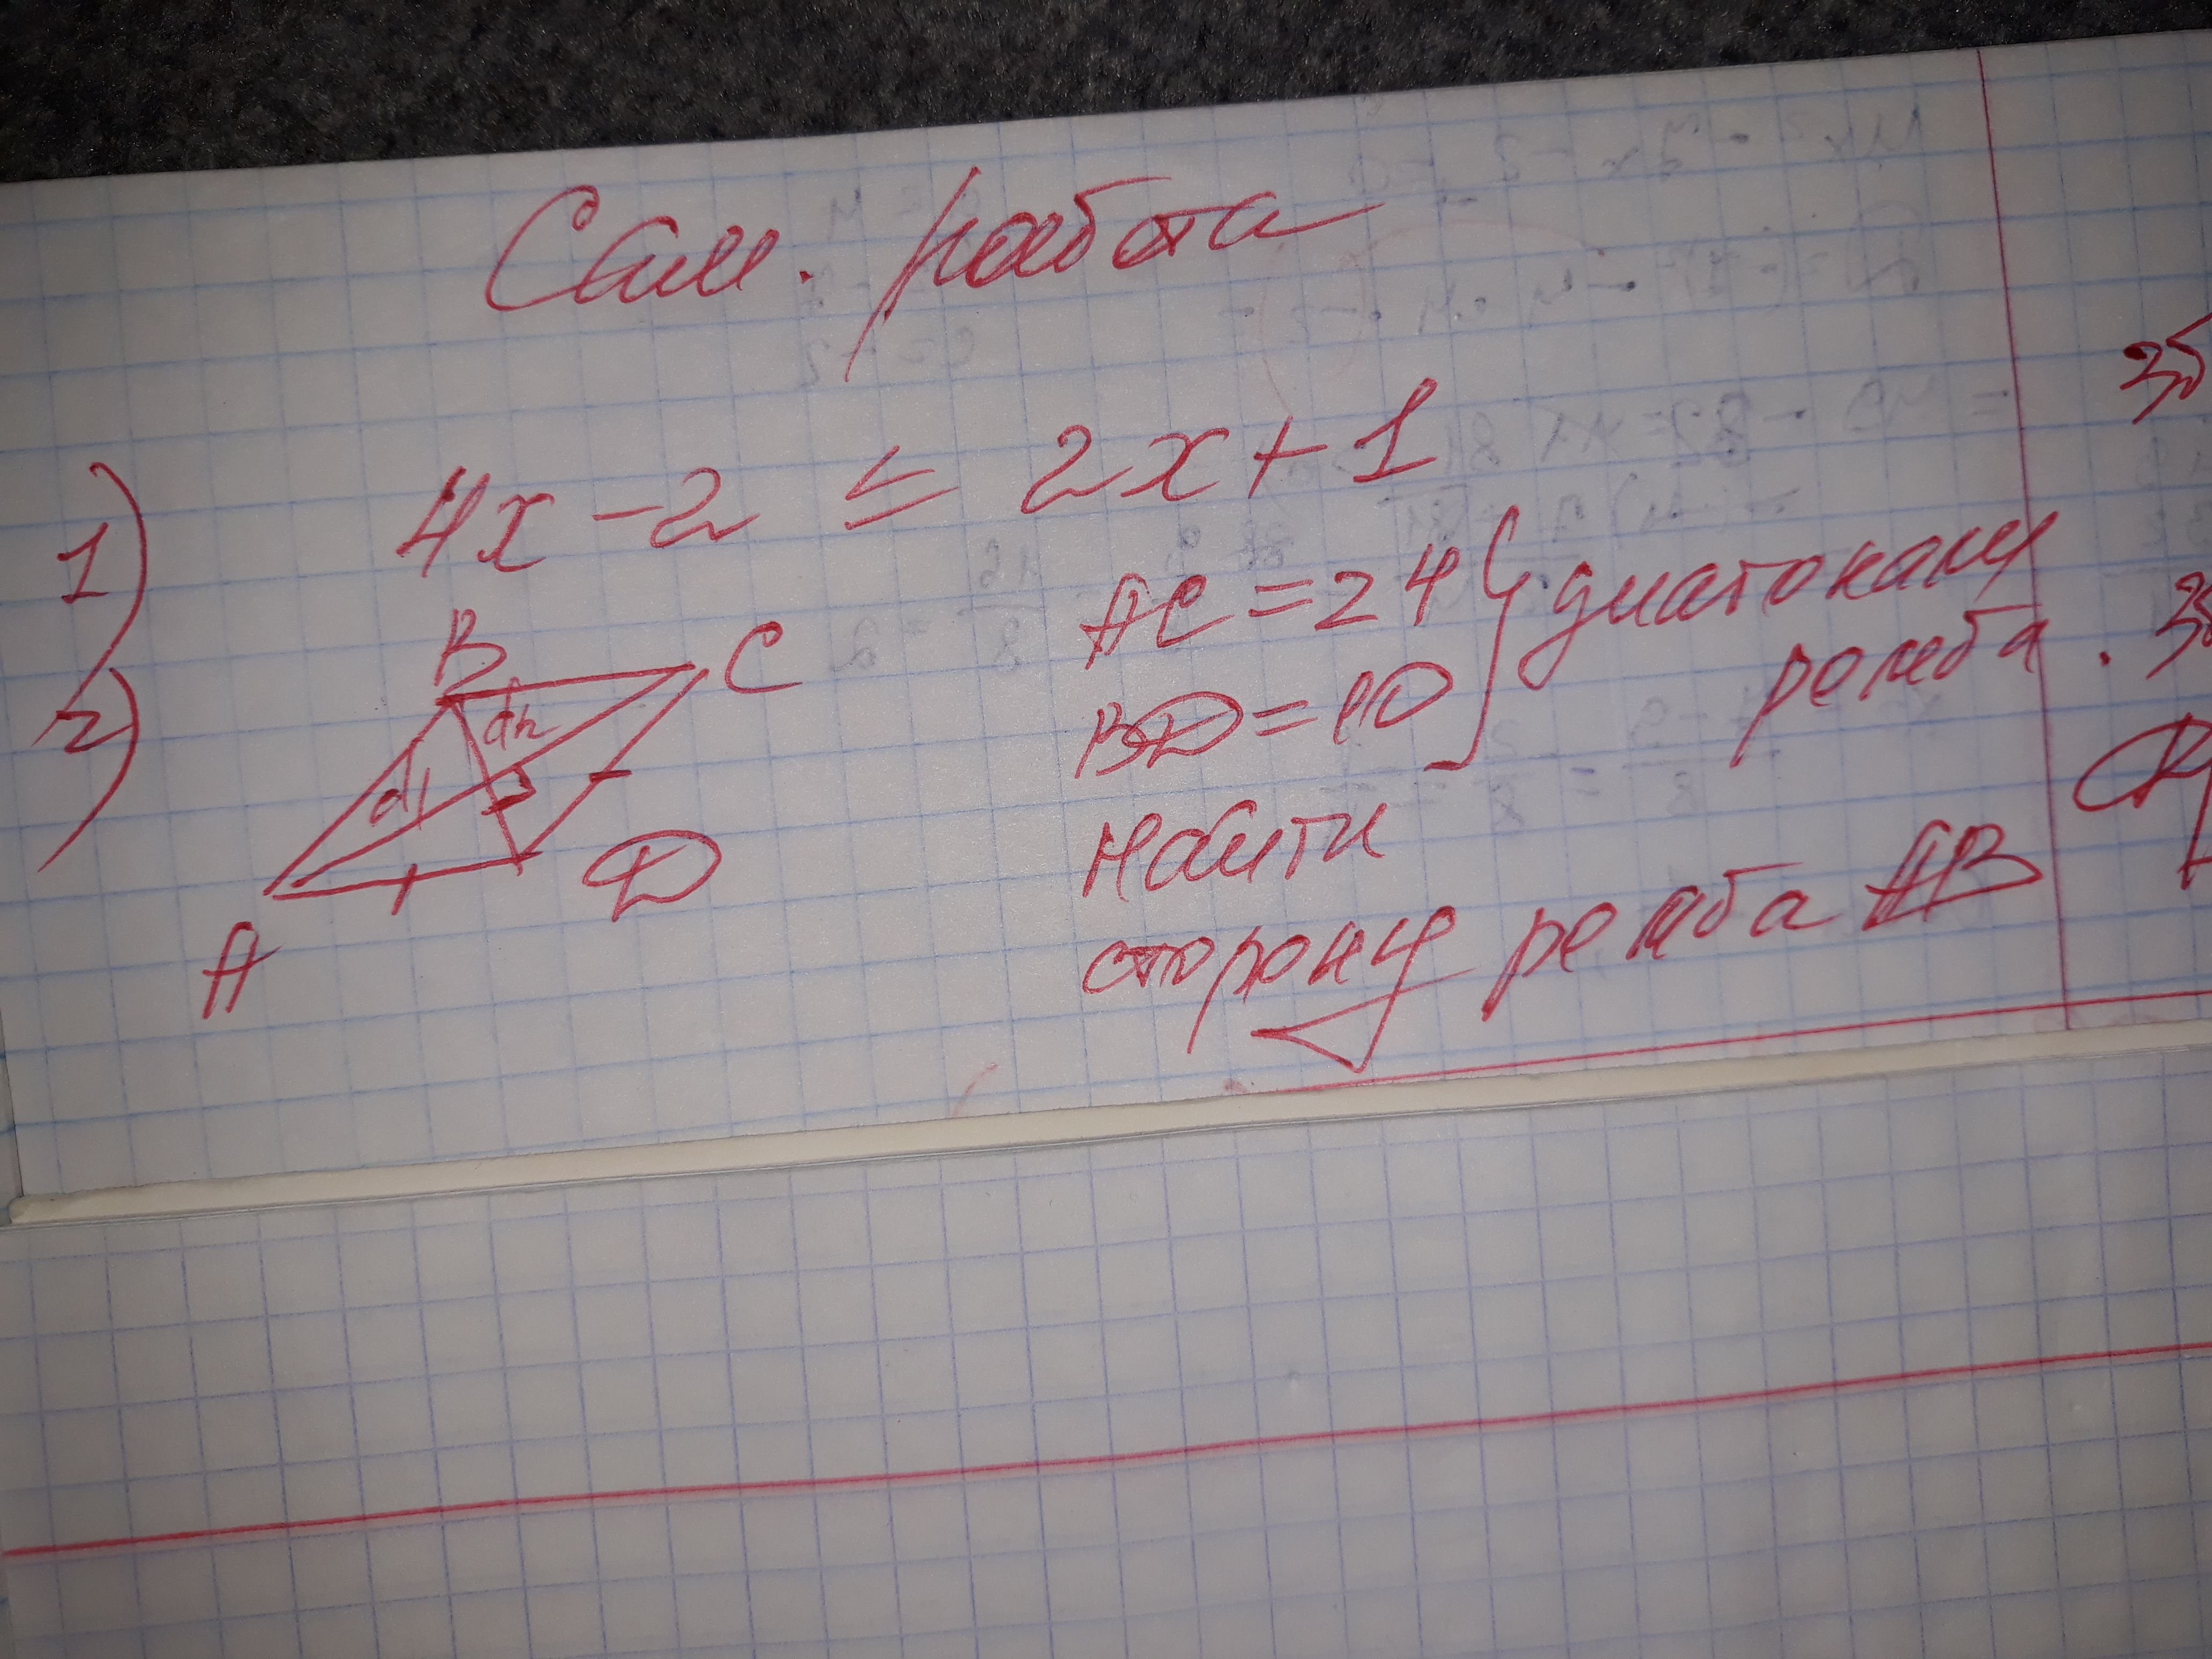 Сам. работа
1) 4x - 2 ≤ 2x + 1
2)
B
C
d1
d2
A
D
AC = 24 } диагонали
BD = 10 ромба.
Найти
сторону ромба AB